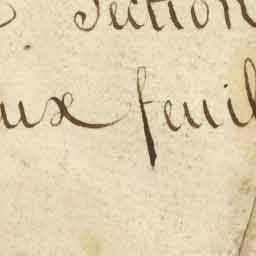 Section
ux feuil